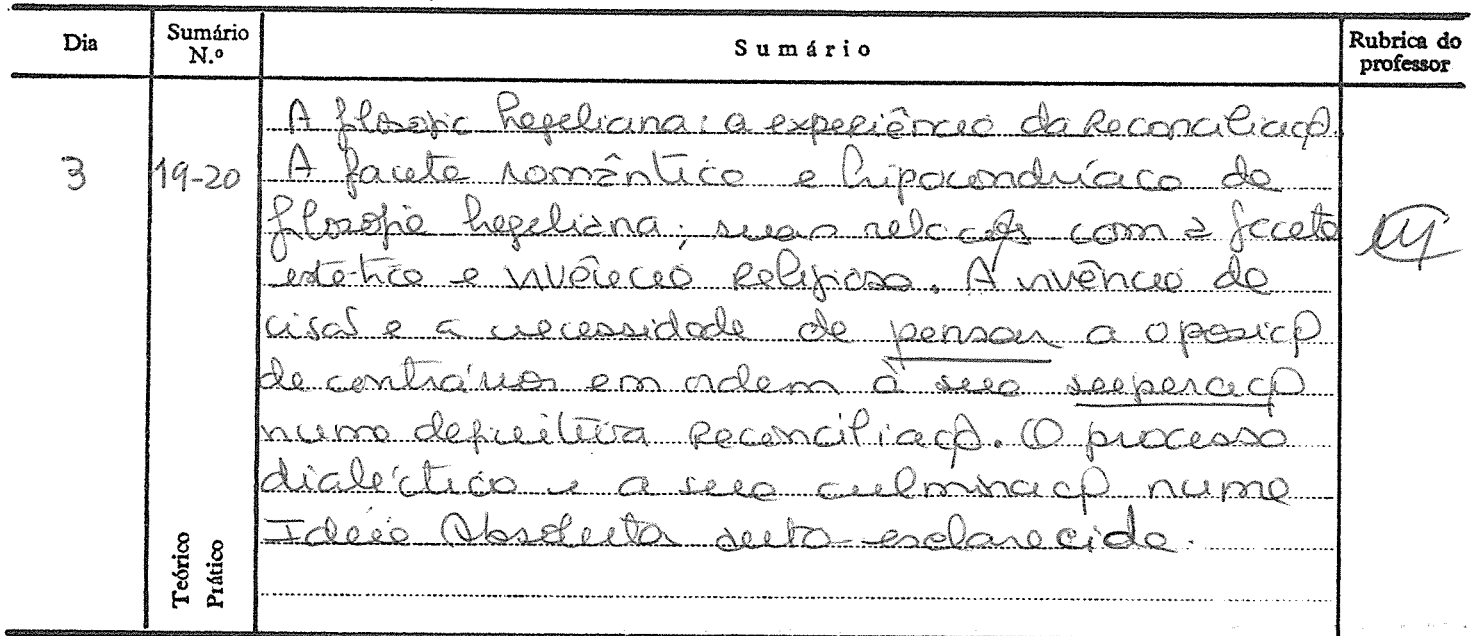 Dia Sumário N.º Sumário Rubrica do professor
3 19-20
A filosofia hegeliana: a experiência da Reconciliação.
A faceta romântica e hipocondríaca da
filosofia hegeliana; suas relações com a faceta
estética e vivência religiosa. A vivência da
cisão e a necessidade de pensar a oposição
de contrários em ordem à sua superação
numa definitiva Reconciliação. O processo
dialéctico e a sua culminação numa
Ideia Absoluta auto-esclarecida.
Teórico
Prático